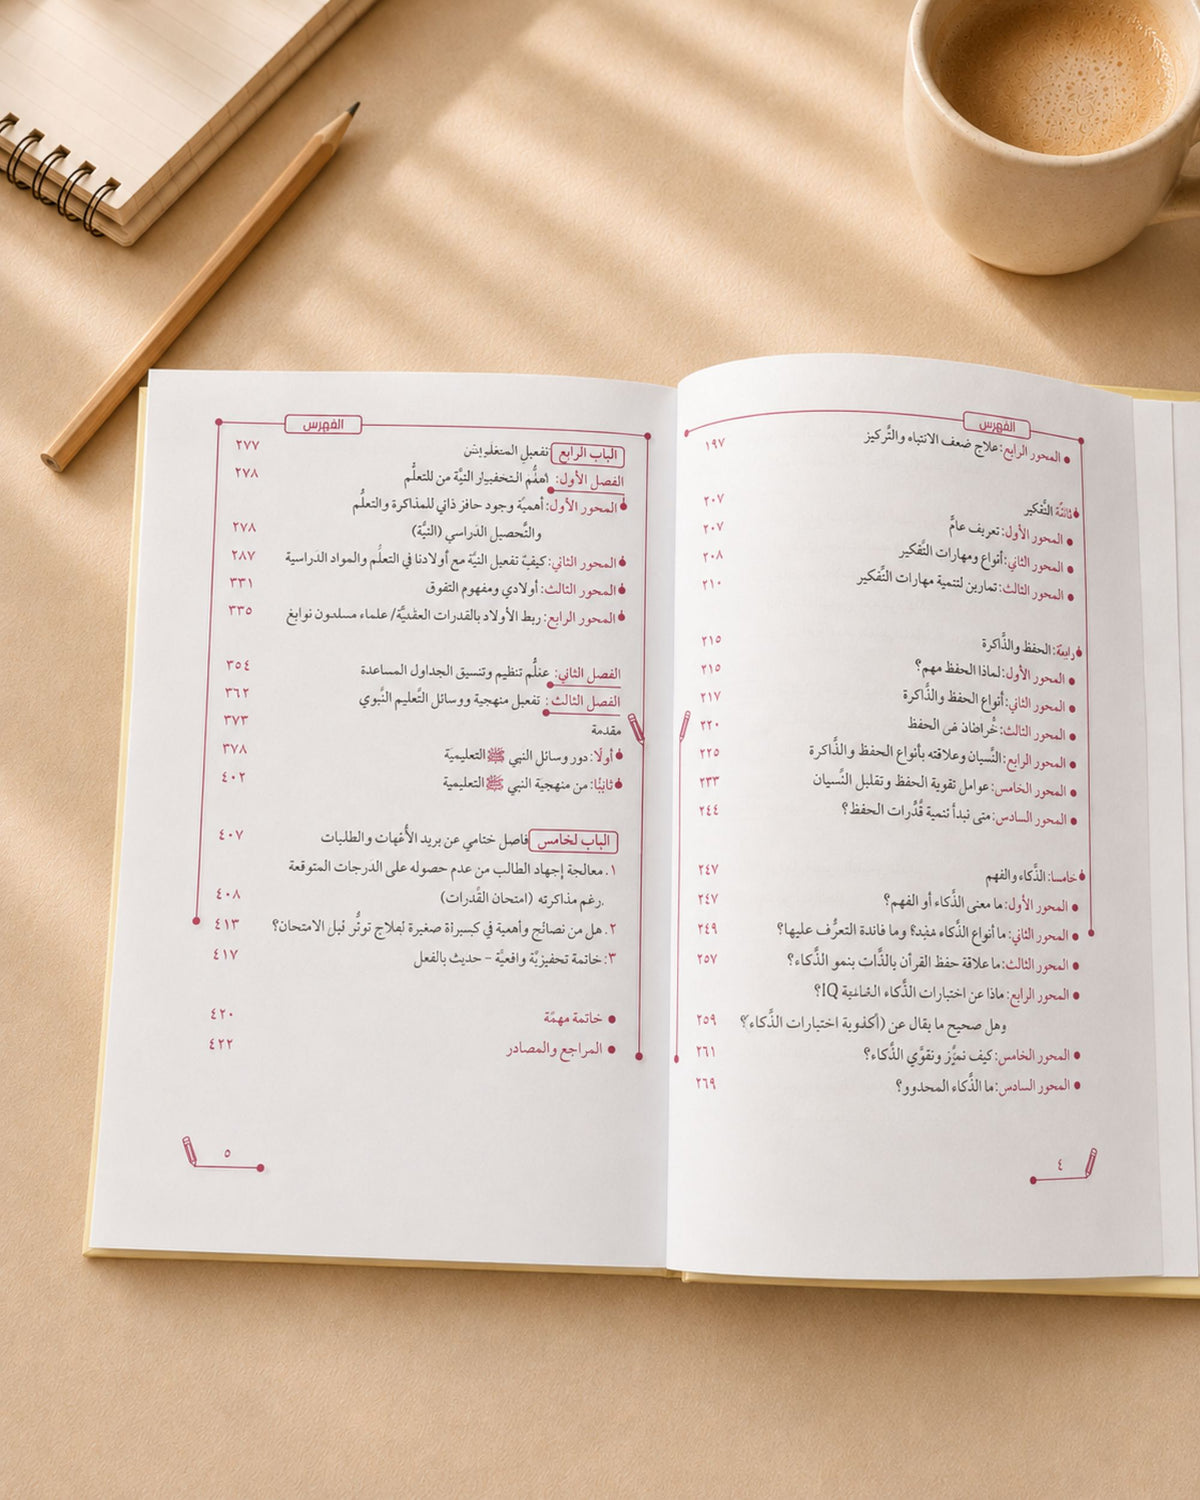 الفهرس
المحور الرابع: علاج ضعف الانتباه والتَّركيز ١٩٧
التَّفكير ٢٠٧
المحور الأول: تعريف عامٌّ ٢٠٧
المحور الثاني: أنواع ومهارات التَّفكير ٢٠٨
المحور الثالث: تمارين لتنمية مهارات التَّفكير ٢١٠
رابعة: الحفظ والذَّاكرة ٢١٥
المحور الأول: لماذا الحفظ مهم؟ ٢١٥
المحور الثاني: أنواع الحفظ والذَّاكرة ٢١٧
المحور الثالث: الحفظ ٢٢٠
المحور الرابع: النَّسيان وعلاقته بأنواع الحفظ والذَّاكرة ٢٢٥
المحور الخامس: عوامل تقوية الحفظ وتقليل النَّسيان ٢٣٣
المحور السادس: متى نبدأ تنمية قُدَّرات الحفظ؟ ٢٤٤
خامسا: الذَّكاء والفهم ٢٤٧
المحور الأول: ما معنى الذَّكاء أو الفهم؟ ٢٤٧
المحور الثاني: ما أنواع الذَّكاء وما فائدة التعرُّف عليها؟ ٢٤٩
المحور الثالث: ما علاقة حفظ القرآن بالذَّات بنمو الذَّكاء؟ ٢٥٧
المحور الرابع: ماذا عن اختبارات الذَّكاء IQ؟
وهل صحيح ما يقال عن (أكذوبة اختبارات الذَّكاء)؟ ٢٥٩
المحور الخامس: كيف نميِّز ونقوِّي الذَّكاء؟ ٢٦١
المحور السادس: ما الذَّكاء المحدوو؟ ٢٦٩
٤
الفهرس
الباب الرابع تفعيل ٢٧٧
الفصل الأول: النيَّة من للتعلُّم ٢٧٨
المحور الأول: أهميَّة وجود حافز ذاتي للمذاكرة والتعلُّم
والتَّحصيل الدراسي (النيَّة) ٢٧٨
المحور الثاني: كيفيَّة تفعيل النيَّة مع أولادنا في التعلُّم والمواد الدراسية ٢٨٧
المحور الثالث: أولادي ومفهوم التفوق ٣٣١
المحور الرابع: ربط الأولاد بالقدرات العقديَّة/ علماء مسلمون نوابغ ٣٣٥
الفصل الثاني: تنظيم وتنسيق الجداول المساعدة ٣٥٤
الفصل الثالث: تفعيل منهجية ووسائل التَّعليم النَّبوي ٣٦٢
مقدمة ٣٧٣
أولًا: دور وسائل النبي ﷺ التعليمية ٣٧٨
ثانيًا: من منهجية النبي ﷺ التعليمية ٤٠٢
الباب لخامس فاصل ختامي عن بريد الأُمَّهات والطلبات ٤٠٧
١. معالجة إجهاد الطالب من عدم حصوله على الدرجات المتوقعة
رغم مذاكرته (امتحان القُدرات). ٤٠٨
٢. هل من نصائح وأهمية في صغيرة لعلاج توتُّر قبل الامتحان؟ ٤١٣
٣: خاتمة تحفيزيَّة واقعيَّة – حديث بالفعل ٤١٧
خاتمة مهمَّة ٤٢٠
المراجع والمصادر ٤٢٢
٥